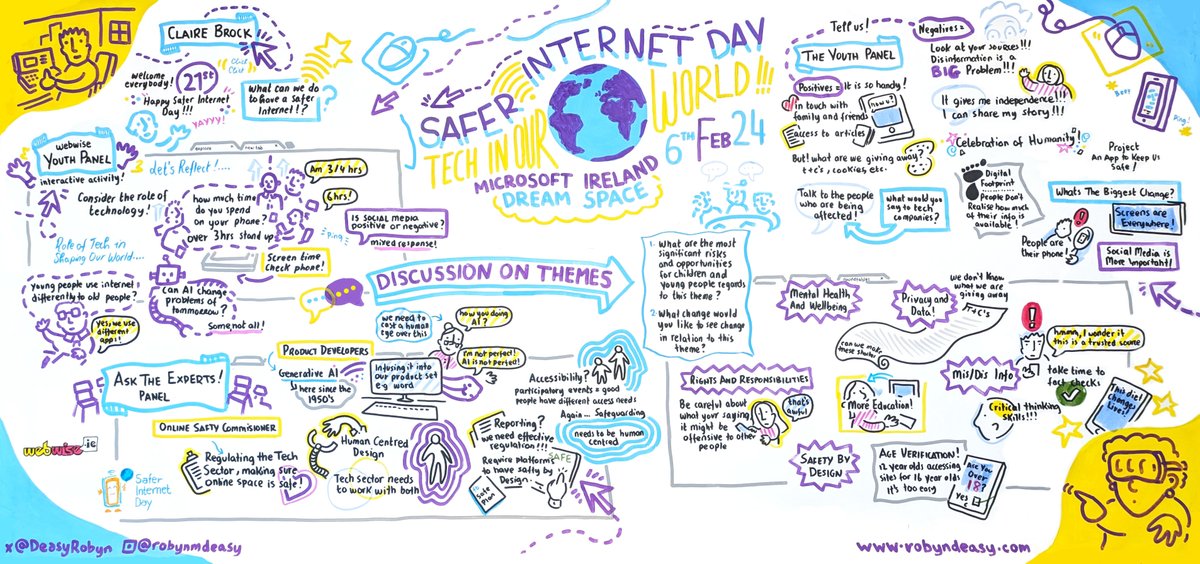 CLAIRE BROCK
Click
Click
welcome
everybody!
21st
Happy Safer Internet
Day!!!
YAYYY!
What can we do
to have a Safer
Internet!?
webwise
YOUTH PANEL
interactive activity!
Consider the role of
technology!
Role of Tech in
Shaping Our World....
young people use internet
differently to old people?
yes, we use
different
apps!
explore
new tab
Let's Reflect!....
how much time
do you spend
on your phone?
over 3hrs stand up
Am 3/4 hrs
6hrs!
PING
Screen time
Check phone!
Can AI change
problems of
tomorrow?
Some not all!
IS SOCIAL MEDIA
POSITIVE OR NEGATIVE?
mixed response!
SAFER INTERNET DAY
TECH IN OUR WORLD!!!
6TH FEB 24
MICROSOFT IRELAND
DREAM SPACE
Tell us!
THE YOUTH PANEL
Positives =
It is so handy!
in touch with
family and friends
access to articles
news!
But! what are we giving away?
t+c's, cookies, etc.
Talk to the people
who are being
affected!
what would you
say to tech
companies?
Negatives =
Look at your sources!!!
Disinformation is a
BIG Problem!!!
It gives me independence!!!
I can share my story!!!
Celebration of Humanity!
Digital
Footprint
People Don't
Realise how much
of their info is
available!
Beep
Ping!
Project
An App to Keep Us
Safe!
WHATS THE BIGGEST CHANGE?
Screens are
Everywhere!
People are
their phone!
SOCIAL MEDIA IS
MORE IMPORTANT!
DISCUSSION ON THEMES
1. What are the most
significant risks
and opportunities
for children and
young people regards
to this theme?
2. What change would
you like to see change
in relation to this
theme?
ASK THE EXPERTS!
PANEL
ONLINE SAFTY COMMISIONER
Regulating the Tech
Sector, making sure
online space is safe!
PRODUCT DEVELOPERS
Generative AI
here since the
1950's
Infusing it into
our product set
e.g word
we need to
cast a human
ege over this
how you doing
AI?
I'm not perfect!
AI is not perfect!
Human Centred
Design
Tech sector needs
to work with both
Accessibility?
participatory events = good
people have different access needs
Again... Safeguarding
needs to be human
centred
Reporting?
we need effective
regulation!!!
Require platforms
to have safty by
Design
SAFE
Safe
Plan
Mental Health
And Wellbeing
Privacy and
Data!
we don't know
what we are
giving away
T+C's
can we make
these shorter
RIGHTS AND RESPONSIBILITIES
Be careful about
what your saying,
it might be
offensive to other
people
that's
awful
More Education!
Mis/Dis Info
hmmm, I wonder if
this is a trusted source
take time to
fact checks
Critical thinking
skills!!!
This diet
changes
Lives!
SAFETY BY
DESIGN
AGE VERIFICATION!
12 year olds accessing
sites for 16 year olds
It's too easy
Are You
Over
18?
yes
webwise.ie
Safer
Internet
Day
x@DeasyRobyn
@robynmdeasy
www.robyndeasy.com